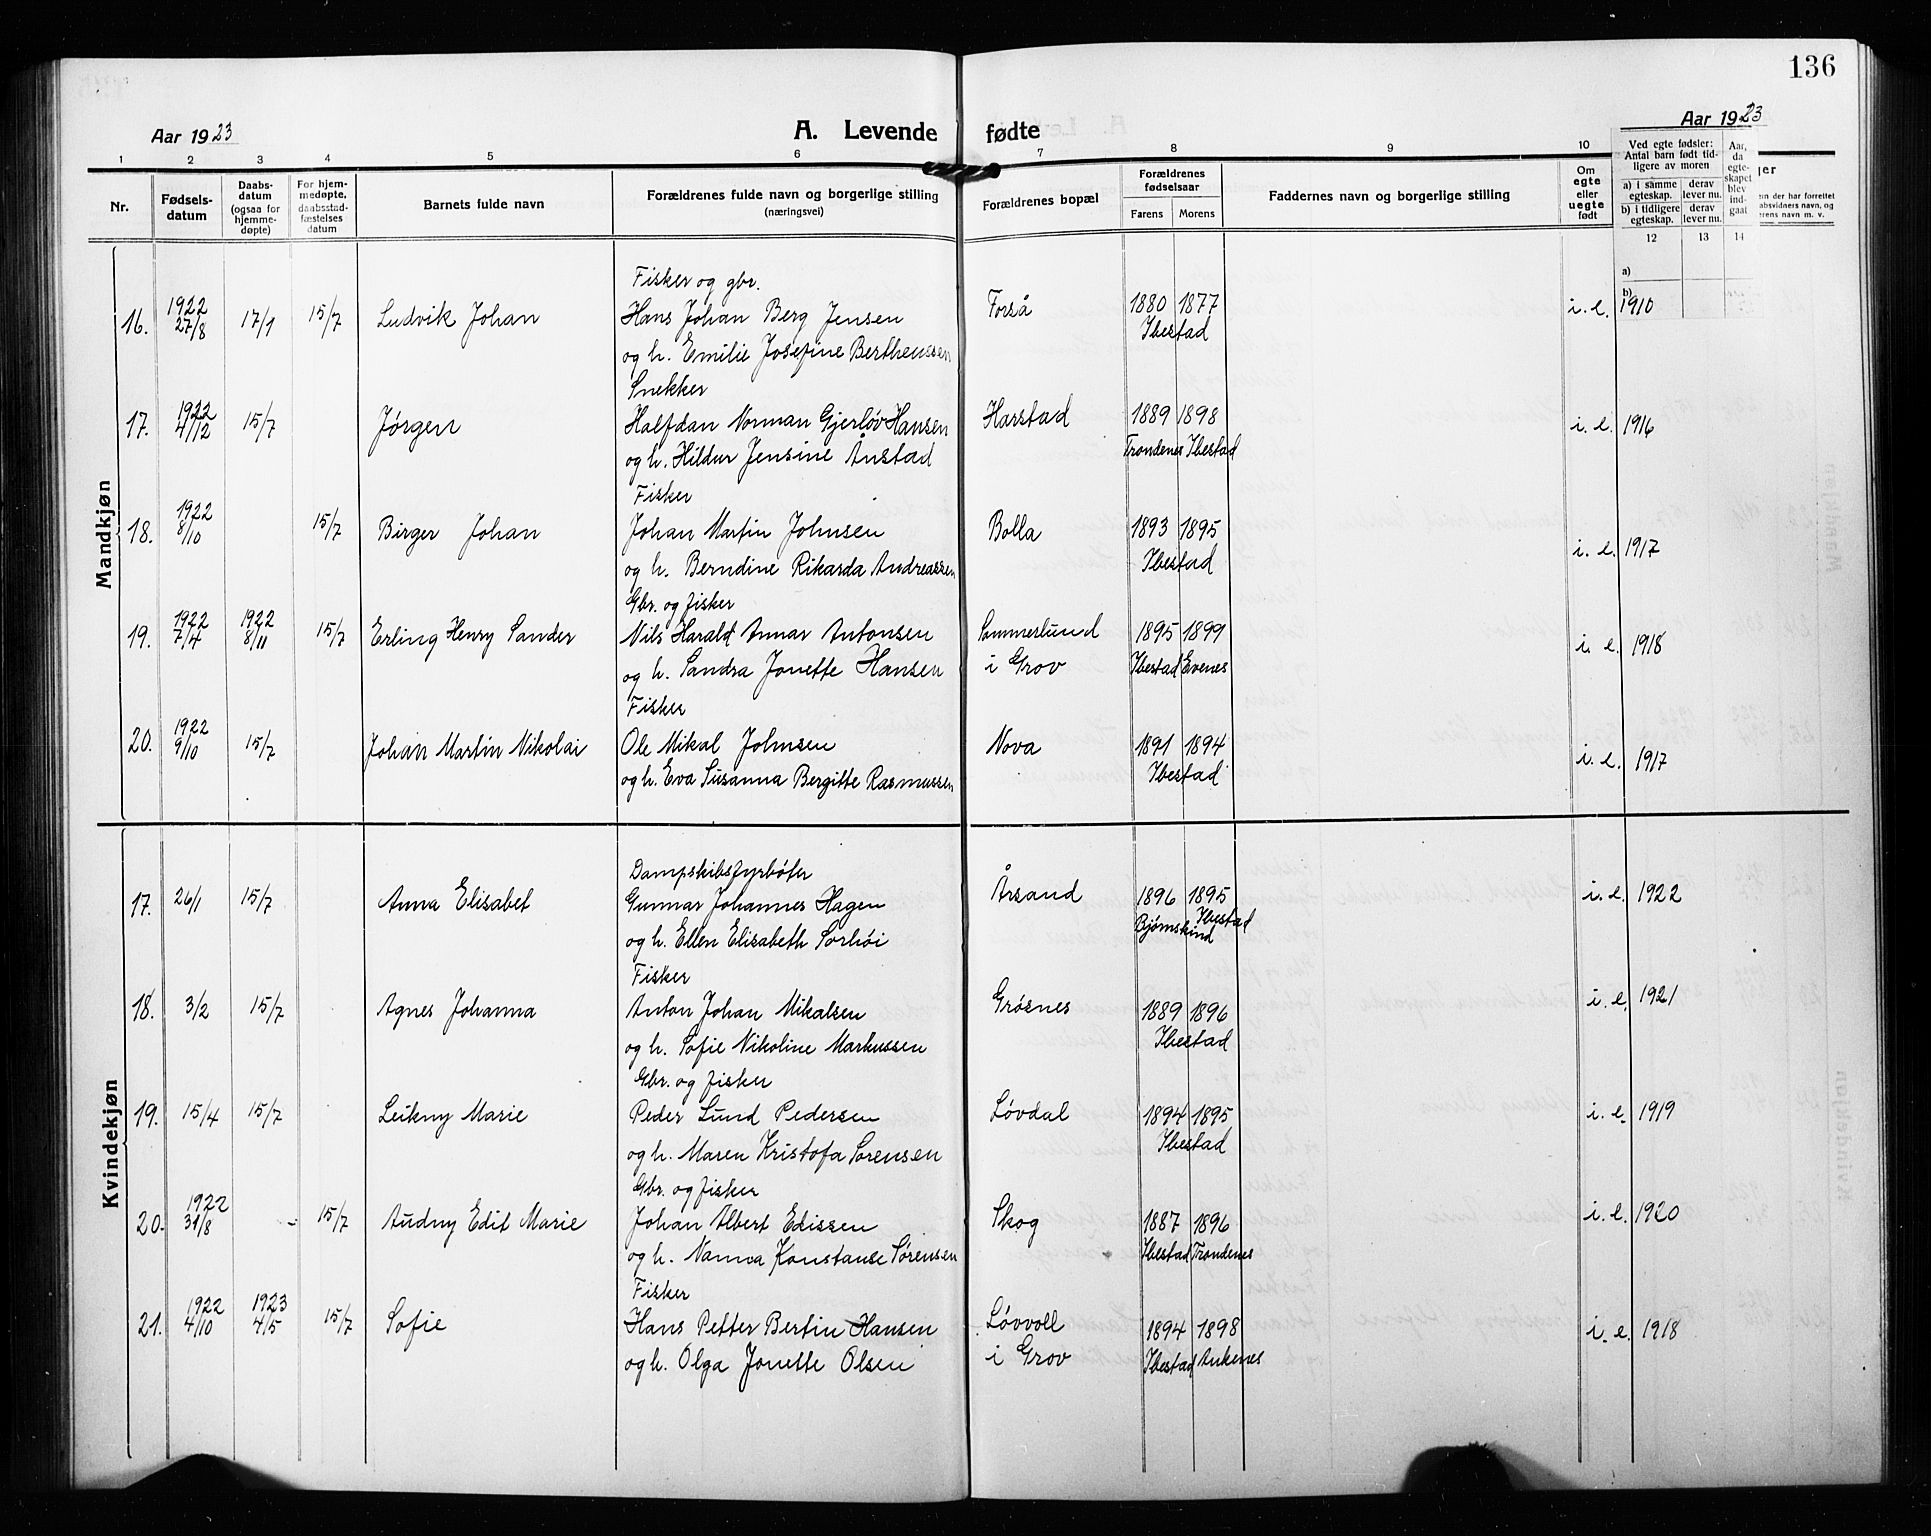 136
Aar 1923
A. Levende fødte
Aar 1923
1 2 3 4 5 6 7 8 9 10
Nr.
Fødsels-
datum
Daabs-
datum
(ogsaa for
hjemme-
døpte)
For hjem-
medøpte,
daabsstad-
fæstelses
datum
Barnets fulde navn
Forældrenes fulde navn og borgerlige stilling
(næringsvei)
Forældrenes bopæl
Forældrenes
fødselsaar
Farens Morens
Faddernes navn og borgerlige stilling
Om
egte
eller
uegte
født
Ved egte fødsler:
Antal barn født tid-
ligere av moren
a) i samme
egteskap.
derav
lever nu.
b) i tidligere
egteskap.
derav
lever nu.
Aar,
da
egte-
skapet
blev
ind-
gaat
12 13 14
a)
b)
ger
ein der har forrettet
absvidners navn, og
erens navn m. v.
Mandkjøn
Fisker og gbr.
16. 1922 27/8 17/1 15/7 Ludvik Johan Hans Johan Berg Jensen Forså 1880 1877 i. e. 1910
Ibestad
og h. Emilie Josefine Bertheussen
Snekker
17. 1922 4/12 15/7 Jørgen Halfdan Norman Gjerløv Hansen Harstad 1889 1898 i. e. 1916
og h. Hildur Jensine Anstad Trondenes Ibestad
Fisker
18. 1922 8/10 15/7 Birger Johan Johan Martin Johnsen Bolla 1893 1895 i. e. 1917
og h. Berndine Rikarda Andreassen Ibestad
Gbr. og fisker
19. 1922 7/4 1922 8/11 15/7 Erling Henry Sander Nils Harald Annar Antonsen Sommerlund 1895 1899 i. e. 1918
og h. Sandra Jonette Hansen i Grov Ibestad Evenes
Fisker
20. 1922 9/10 15/7 Johan Martin Nikolai Ole Mikal Johnsen Nova 1891 1894 i. e. 1917
og h. Eva Susanna Bergitte Rasmussen Ibestad
Kvindekjøn
Dampskibsfyrbøter
17. 26/1 15/7 Anna Elisabet Gunnar Johannes Hagen Årsand 1896 1895 i. e. 1922
og h. Ellen Elisabeth Sørhøi Bjørnskind Ibestad
Fisker
18. 3/2 15/7 Agnes Johanna Anton Johan Mikalsen Grøsnes 1889 1896 i. e. 1921
og h. Sofie Nikoline Markussen Ibestad
Gbr. og fisker
19. 15/4 15/7 Leikny Marie Peder Lund Pedersen Løvdal 1894 1895 i. e. 1919
og h. Maren Kristofa Sørensen Ibestad
Gbr. og fisker
20. 1922 31/8 - 15/7 Audny Edit Marie Johan Albert Edissen Skog 1887 1896 i. e. 1920
og h. Nanna Konstanse Sørensen Ibestad Trondenes
Fisker
21. 1922 4/10 1923 4/5 15/7 Sofie Hans Petter Bertin Hansen Løvvoll 1894 1898 i. e. 1918
og h. Olga Jonette Olsen i Grov Ibestad Ankenes